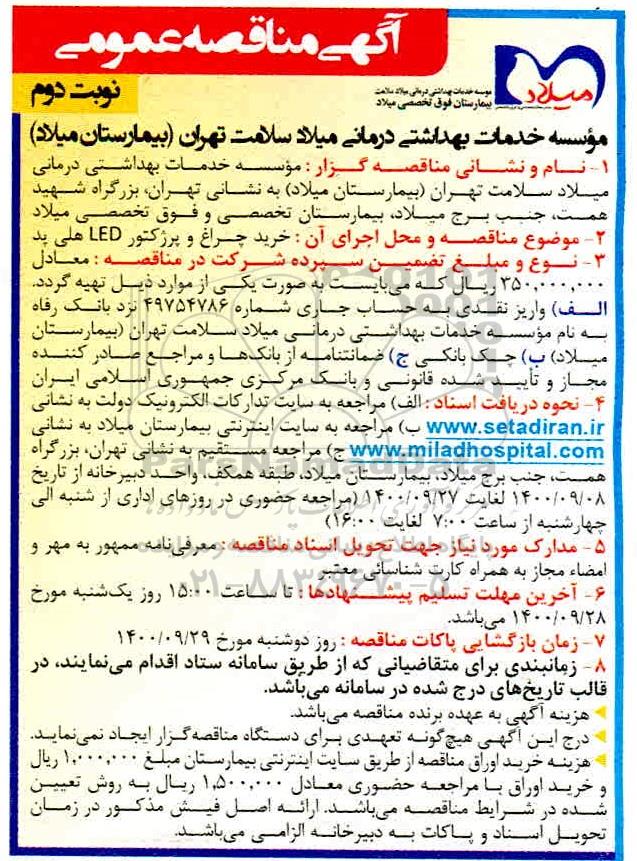 آگهی مناقصه عمومی
میلاد
موسسه خدمات بهداشتی درمانی میلاد سلامت
بیمارستان فوق تخصصی میلاد
نوبت دوم
مؤسسه خدمات بهداشتی درمانی میلاد سلامت تهران (بیمارستان میلاد)
۱- نـام و نشـانی مناقصـه گـزار : مؤسسـه خدمـات بهداشـتی درمانی
میـلاد سـلامت تهـران (بیمارسـتان میلاد) به نشـانی تهـران، بزرگراه شـهید
همـت، جنـب بـرج میـلاد، بیمارسـتان تخصصـی و فـوق تخصصـی میلاد
۲- موضوع مناقصـه و محل اجرای آن : خرید چـراغ و پرژکتور LED هلی پد
۳- نـوع و مبلـغ تضمیـن سـپرده شـرکت در مناقصـه : معـادل
۳۵۰,۰۰۰,۰۰۰ ریـال کـه می‌بایسـت به صـورت یکـی از موارد ذیـل تهیه گردد.
الـف) واریـز نقـدی بـه حسـاب جـاری شـماره ۴۹۷۵۴۷۸۶ نزد بانـک رفاه
به نام مؤسسـه خدمات بهداشـتی درمانـی میلاد سـلامت تهران (بیمارسـتان
میـلاد) ب) چـک بانکـی ج) ضمانتنامـه از بانک‌هـا و مراجـع صـادر کننـده
مجـاز و تأییـد شـده قانونـی و بانـک مرکـزی جمهـوری اسـلامی ایران
۴- نحوه دریافت اسناد : الف) مراجعه به سایت تدارکات الکترونیک دولت به نشانی
www.setadiran.ir ب) مراجعه به سایت اینترنتی بیمارستان میلاد به نشانی
www.miladhospital.com ج) مراجعه مستقیم به نشانی تهران، بزرگراه
همـت، جنب برج میلاد، بیمارسـتان میـلاد، طبقه همکف، واحـد دبیرخانه از تاریخ
۱۴۰۰/۰۹/۰۸ لغایت ۱۴۰۰/۰۹/۲۷ (مراجعه حضوری در روزهای اداری از شنبه الی
چهارشنبه از ساعت ۷:۰۰ لغایت ۱۶:۰۰)
۵- مدارک مورد نیاز جهت تحویل اسناد مناقصه : معرفی‌نامه ممهور به مهر و
امضاء مجاز به همراه کارت شناسائی معتبر
۶- آخریـن مهلـت تسـلیم پیشـنهادها : تـا سـاعت ۱۵:۰۰ روز یک‌شـنبه مـورخ
۱۴۰۰/۰۹/۲۸ می‌باشد.
۷- زمان بازگشایی پاکات مناقصه : روز دوشنبه مورخ ۱۴۰۰/۰۹/۲۹
۸- زمانبندی برای متقاضیانی که از طریق سامانه ستاد اقدام می‌نمایند، در
قالب تاریخ‌های درج شده در سامانه می‌باشد.
هزینه آگهی به عهده برنده مناقصه می‌باشد.
درج ایـن آگهـی هیچ‌گونـه تعهـدی بـرای دستگاه مناقصه‌گزار ایجاد نمی‌نمایـد.
هزینـه خریـد اوراق مناقصه از طریق سایت اینترنتی بیمارستان مبلغ ۱,۰۰۰,۰۰۰ ریال
و خریـد اوراق بـا مراجعـه حضـوری معـادل ۱,۵۰۰,۰۰۰ ریـال به روش تعیین
شـده در شـرایط مناقصـه می‌باشـد. ارائـه اصـل فیـش مذکـور در زمـان
تحویل اسناد و پاکات به دبیرخانه الزامی می‌باشد.
ParsNamadData